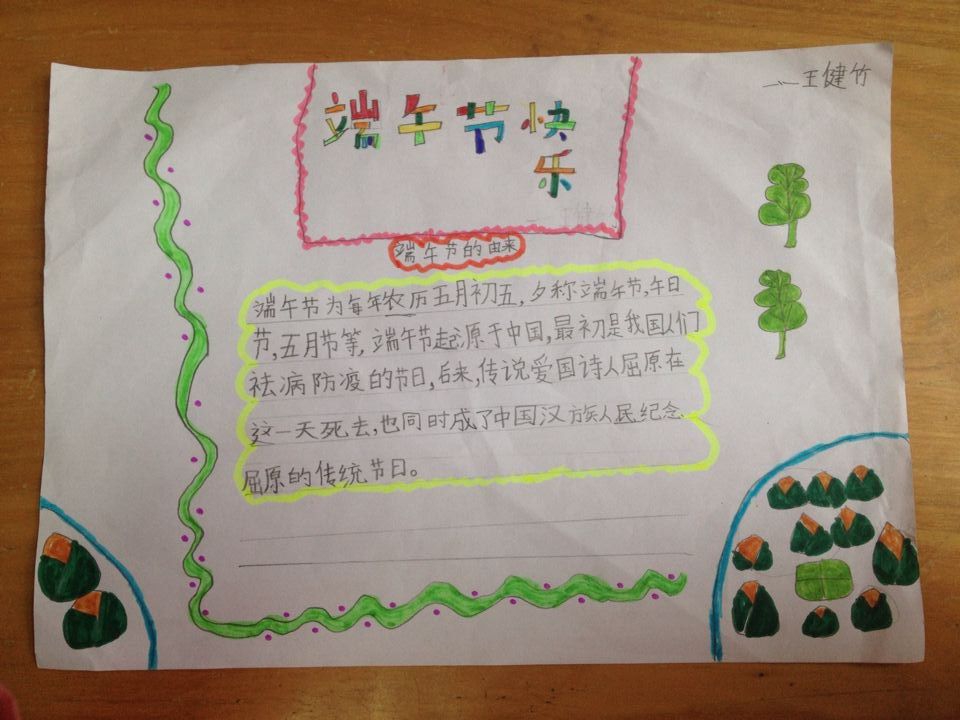 ——王健竹
端午节快
乐
端午节的由来
端午节为每年农历五月初五,夕称端午节,午日
节,五月节等,端午节起原于中国,最初是我国人们
祛病防疫的节日,后来,传说爱国诗人屈原在
这一天死去,也同时成了中国汉族人民纪念
屈原的传统节日。